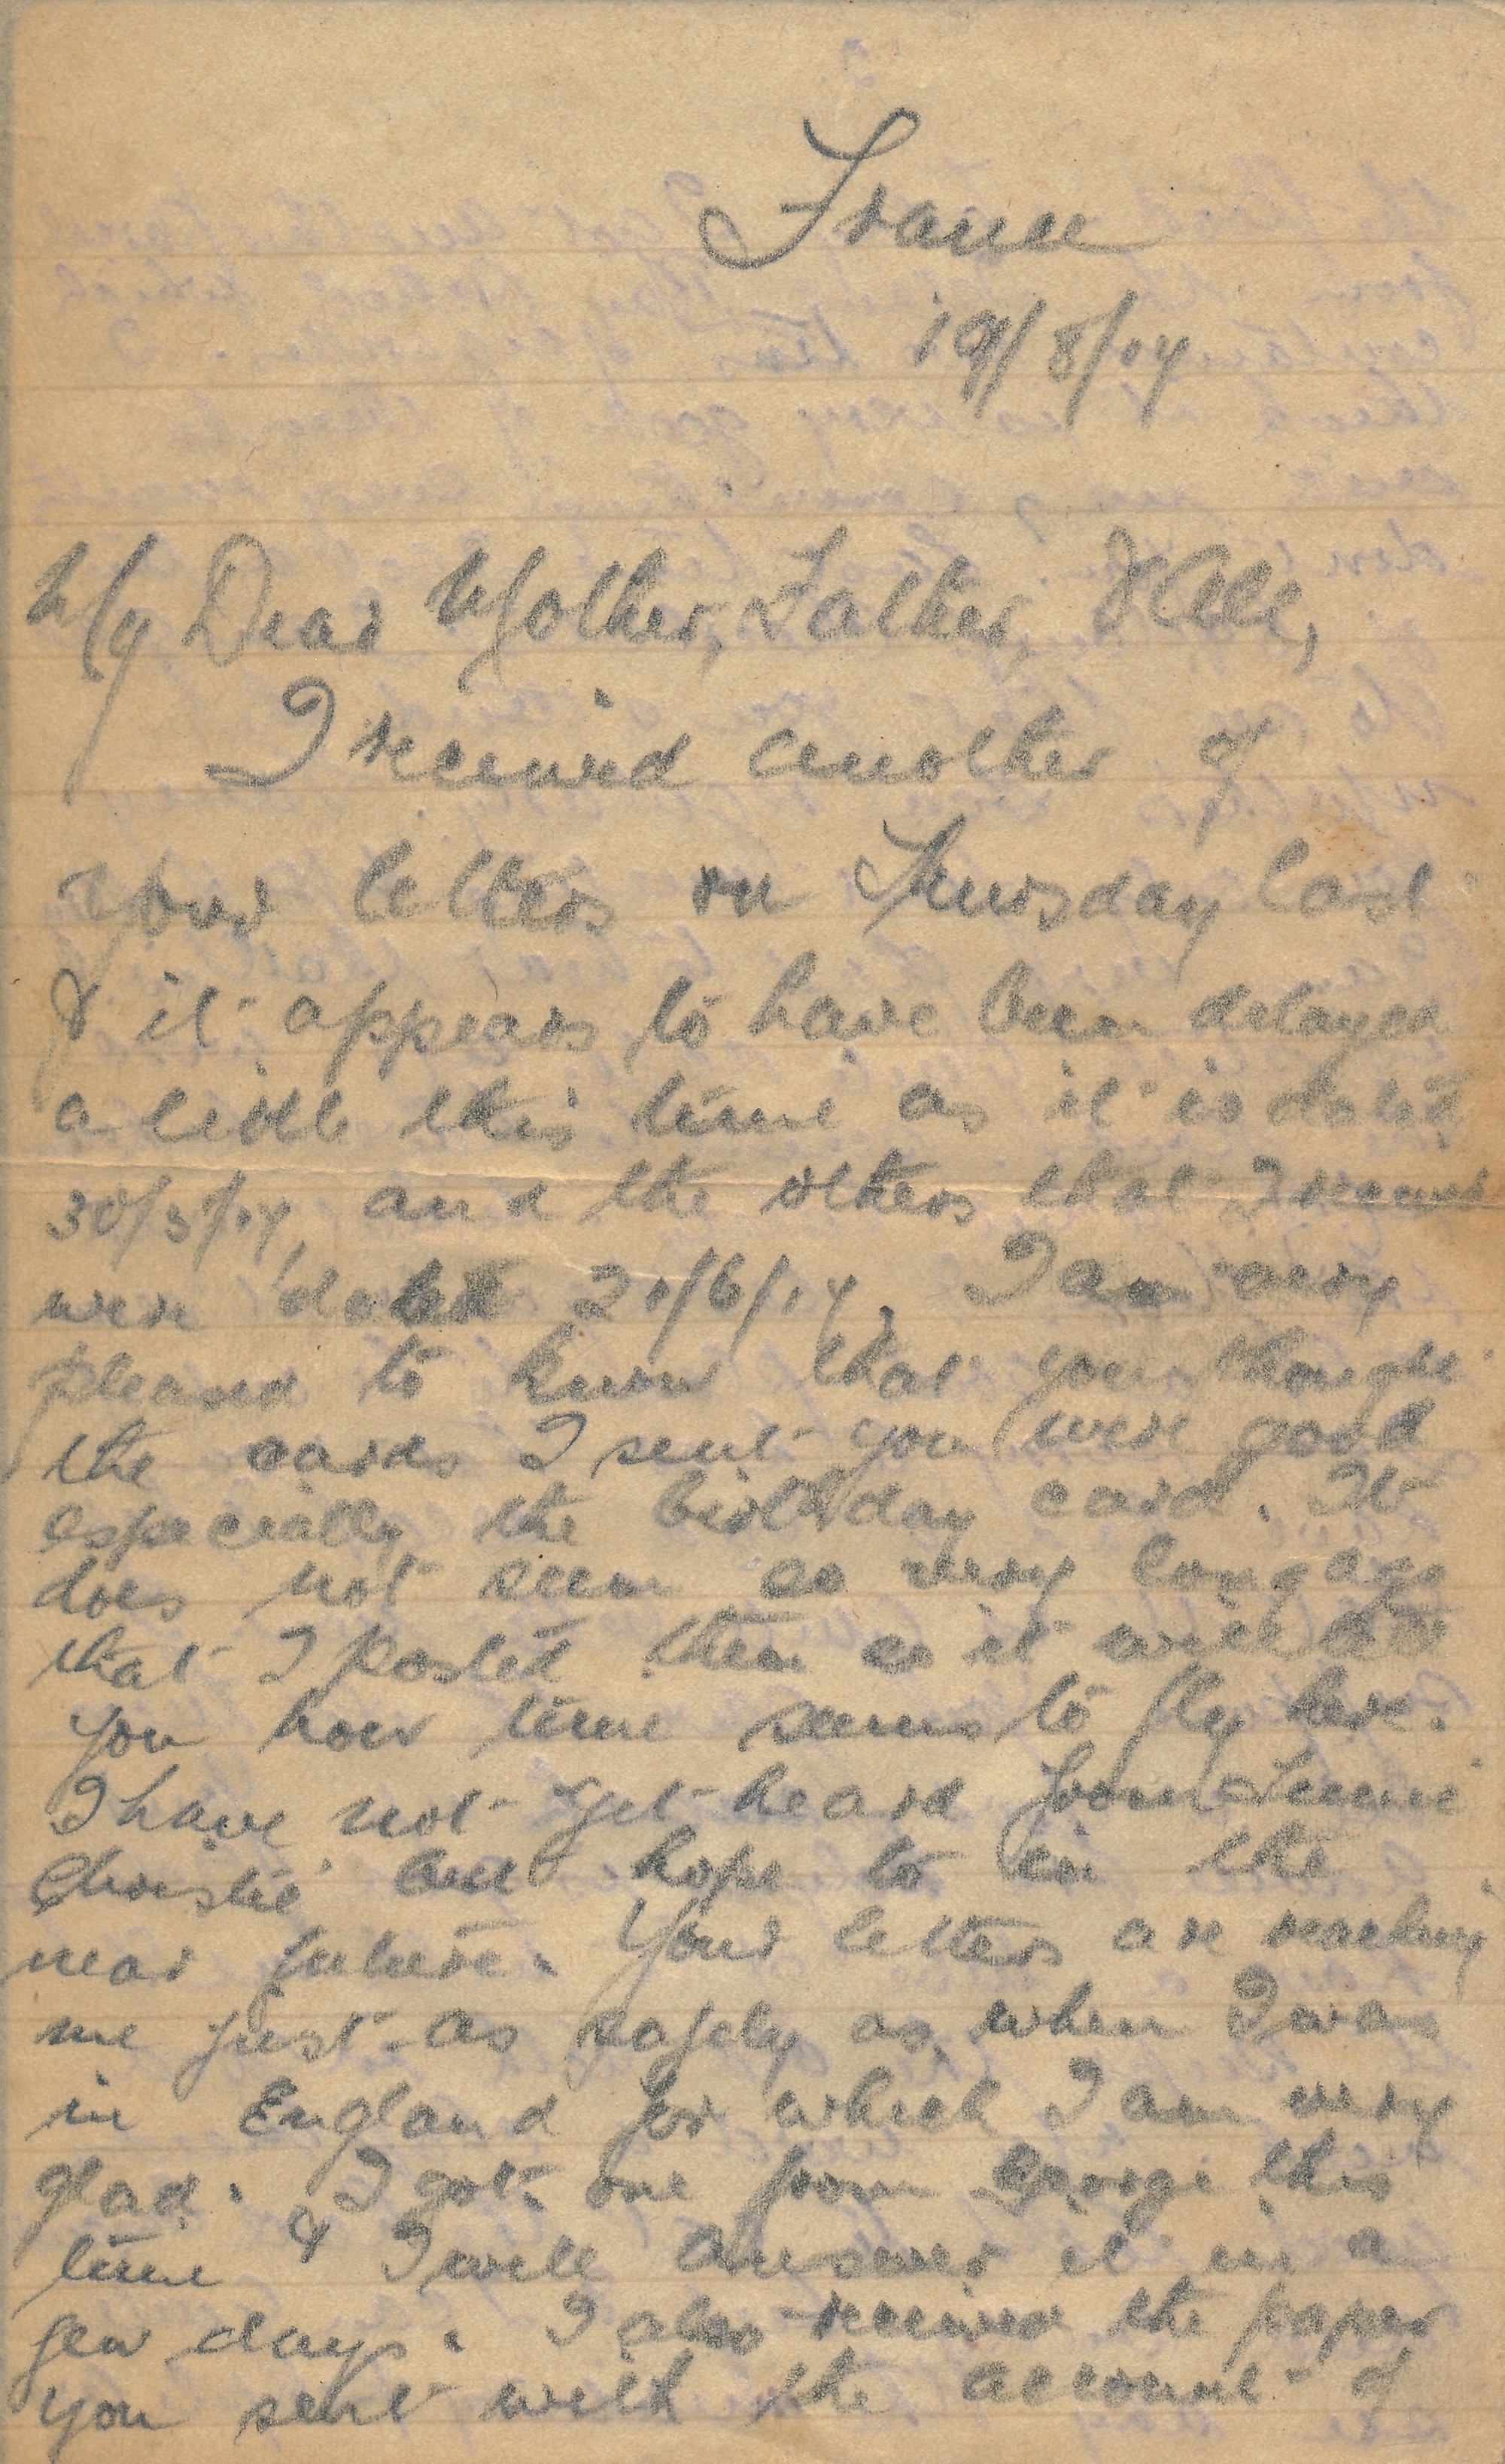 France
19/8/17
My Dear Mother, Father, & All,
I received another of
your letters on Thursday last
& it appears to have been delayed
a little this time as it is dated
30/5/17, and the others that I received
were dated 21/6/17. I am very
pleased to know that you thought
the cards I sent you were good
especially the birthday card. It
does not seem so very long ago
that I posted them so it will
you how time seems to fly here.
I have not yet heard from
Christie but hope to in the
near future. Your letters are reaching
me just as safely as when I was
in England for which I am very
glad. I got one from George this
time & I will answer it in a
few days. I also received the paper
you sent with the account of